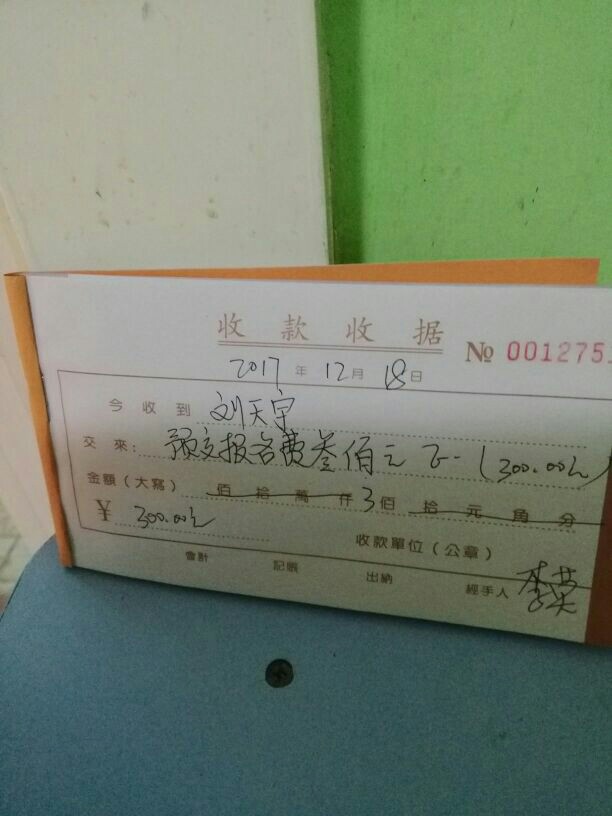 收款收据
№ 001275
2017 年 12 月 18 日
今收到 刘天宇
交來: 预交报名费叁佰元正 (300.00元)
金額(大寫) 佰拾萬仟3佰拾元角分
¥ 300.00元 收款單位(公章)
會計 記賬 出納 經手人 李荣